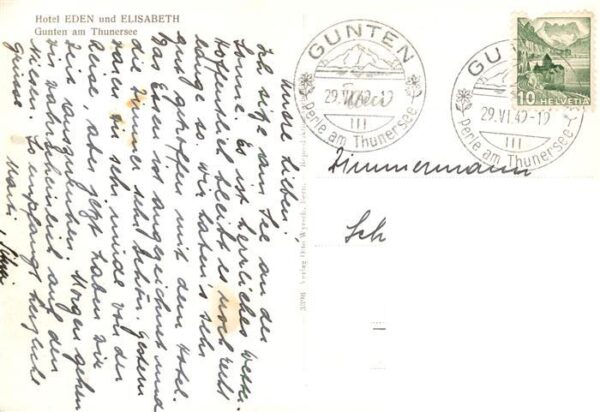 Hotel EDEN und ELISABETH
Gunten am Thunersee
Unsere Lieben,
Ich sitze am See an der
Sonne. Es ist herrliches Wetter.
Hoffentlich bleibt es noch recht
lange so. Wir haben's sehr
gut getroffen mit dem Hotel.
Das Essen ist ausgezeichnet und
die Zimmer sehr schön. Gestern
waren wir sehr müde von der
Reise, aber jetzt haben wir
Morgen gehen
wir wahrscheinlich auf den
Niesen. So empfangt herzliche
Grüsse
GUNTEN
29.VI.49
Perle am Thunersee
III
GUNTEN
29.VI.49-12
Perle am Thunersee
III
10 HELVETIA
Zimmermann
Sch